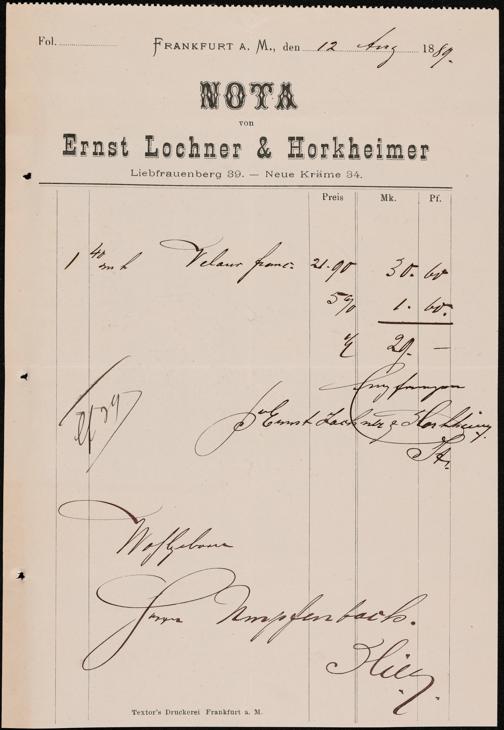 Fol.
FRANKFURT A. M., den 12 Aug 1889.
NOTA
von
Ernst Lochner & Horkheimer
Liebfrauenberg 39. — Neue Kräme 34.
Preis Mk. Pf.
1 40 m Velour franc. 21.90 30. 60
5% 1. 60.
29. —
Empfangen
Ernst Lochner & Horkheimer
Wohlgeboren
Herrn Umpfenbach.
Hier.
Textor's Druckerei Frankfurt a. M.